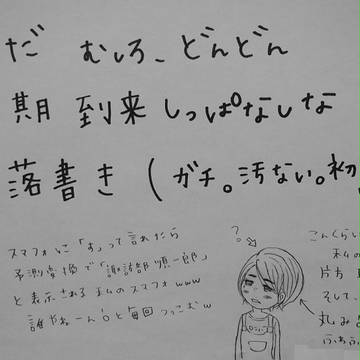 だ むしろ、どんどん
期 到来 しっぱなしな
落書き ( ガチ。汚ない。初
スマフォに「すょって言れたら
予測変換で「謝謝部順一郎」
と表示される私のスマフォwww
誰やねーん!と毎回つっこむw
?
こんくらい
私の
片方
そして、
丸み
ふぁふ